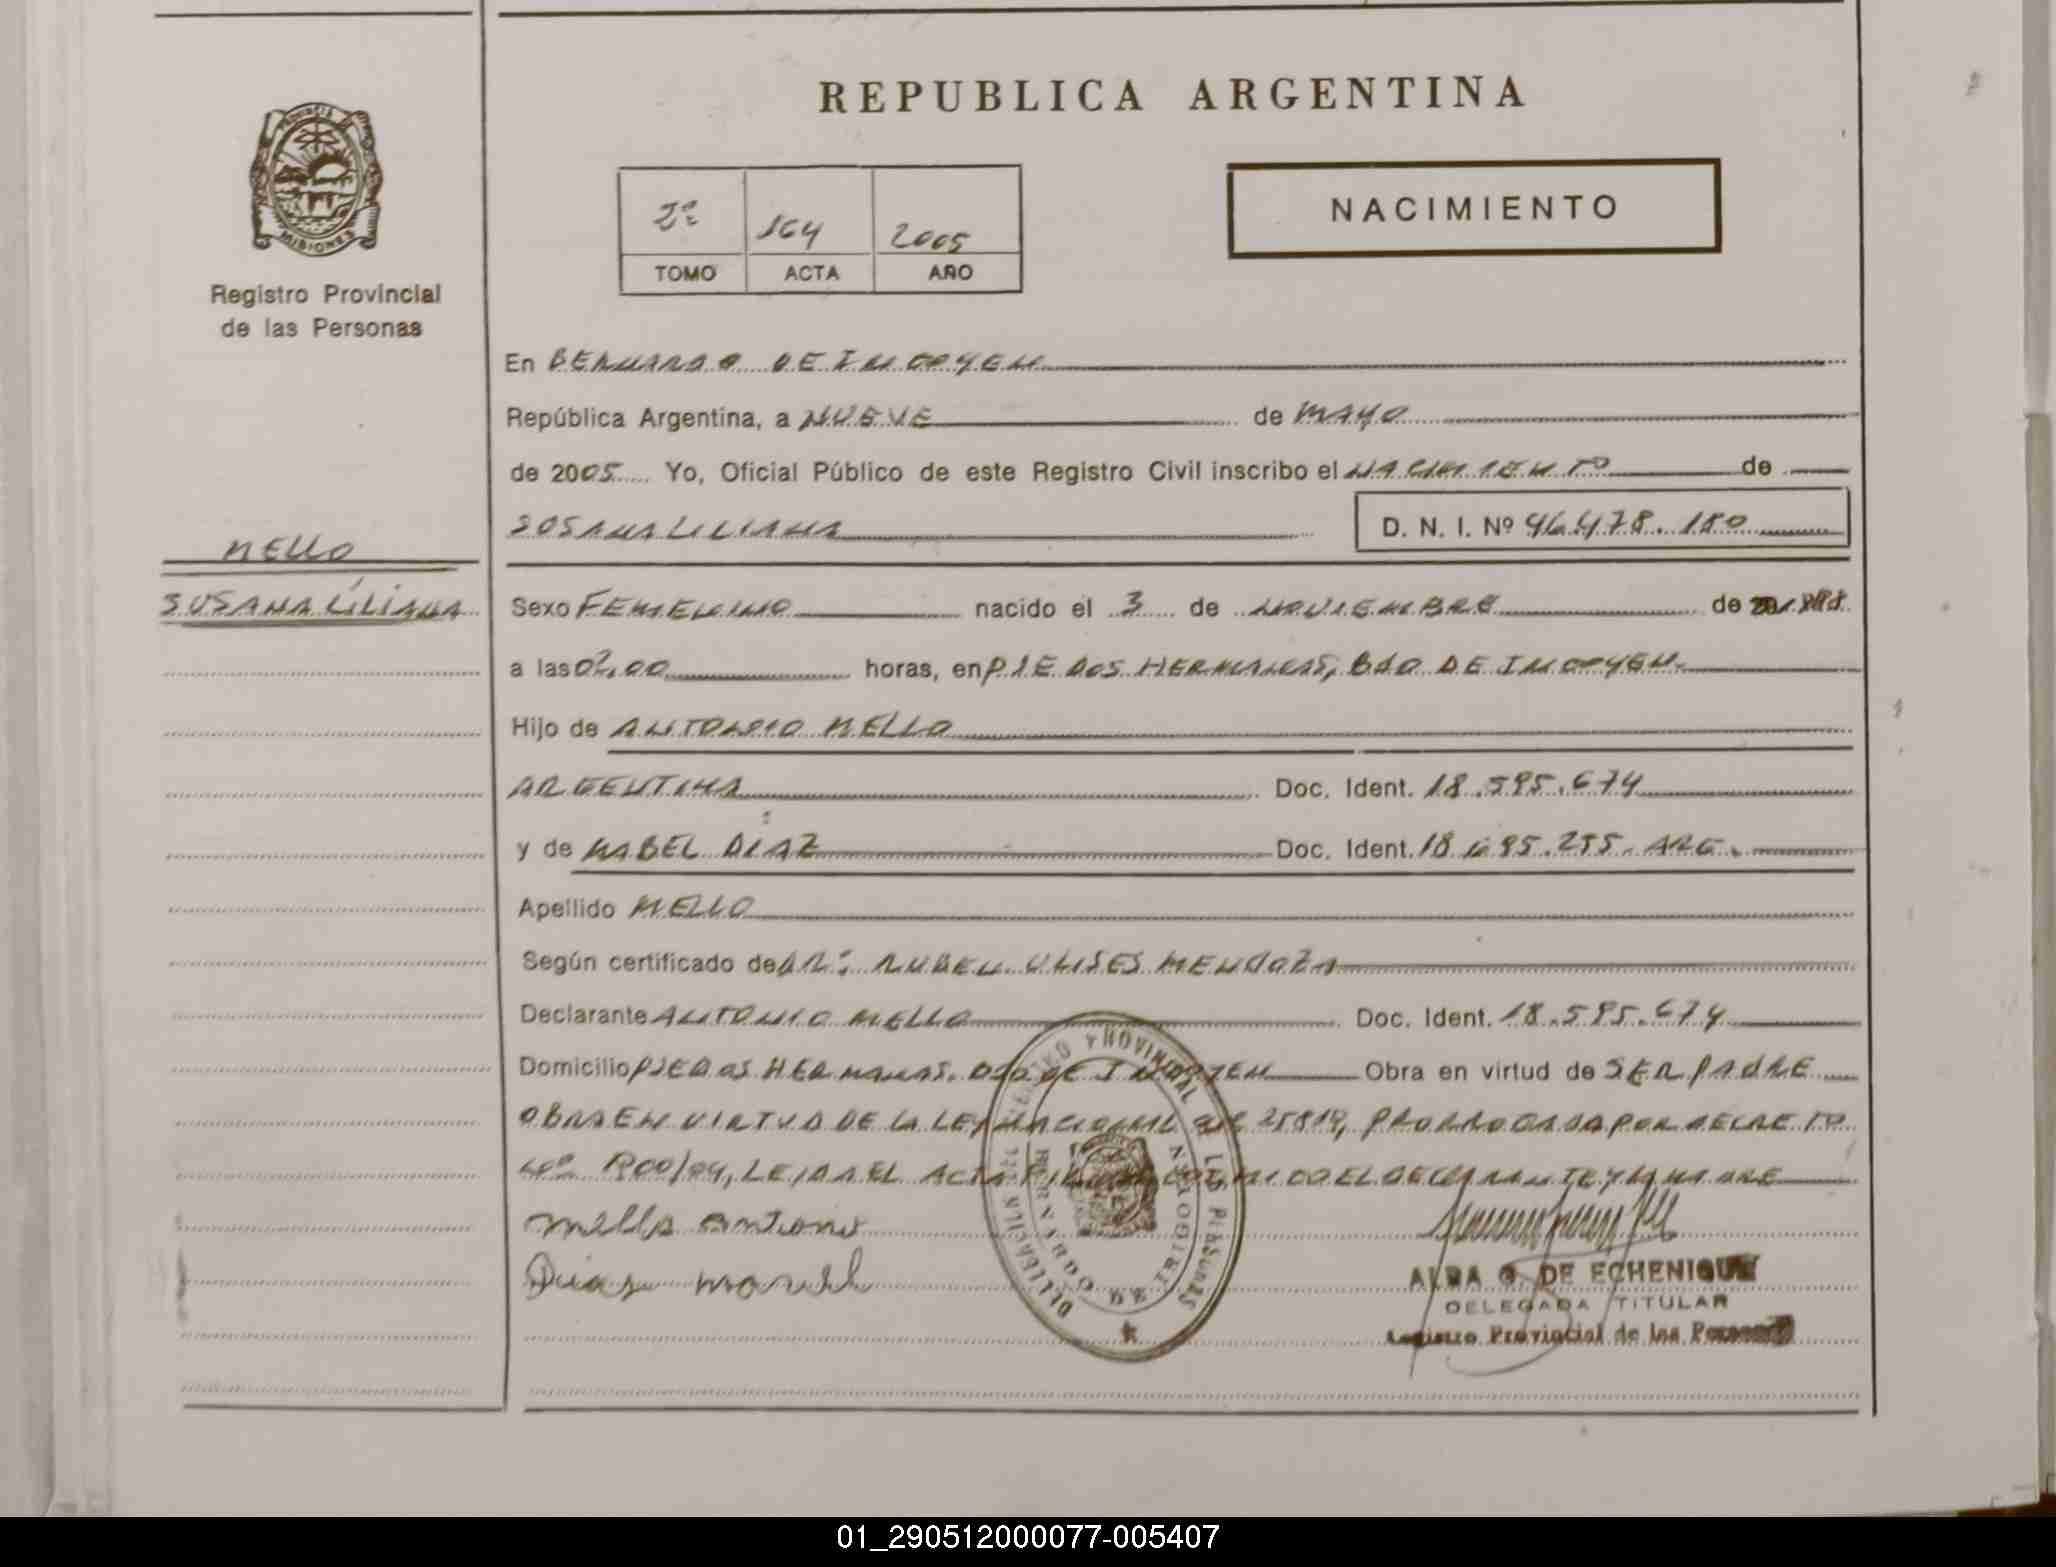 REPUBLICA ARGENTINA
PROVINCIA DE MISIONES
Registro Provincial
de las Personas
2º 164 2005
TOMO ACTA AÑO
NACIMIENTO
En BERNARDO DE IRIGOYEN
República Argentina, a NUEVE de MAYO
de 2005 Yo, Oficial Público de este Registro Civil inscribo el NACIMIENTO de
SUSANA LILIANA D. N. I. Nº 46.478.180
MELLO
SUSANA LILIANA
Sexo FEMENINO nacido el 3 de NOVIEMBRE de
a las 02,00 horas, en PJE DOS HERMANAS, BDO DE IRIGOYEN.
Hijo de ANTONIO MELLO
ARGENTINA Doc. Ident. 18.595.674
y de MABEL DIAZ Doc. Ident. 18.695.255. ARG.
Apellido MELLO
Según certificado de DR: RUBEN ULISES MENDOZA
Declarante ANTONIO MELLO Doc. Ident. 18.595.674
Domicilio PJE DOS HERMANAS. BDO DE IRIGOYEN Obra en virtud de SER PADRE
OBRA EN VIRTUD DE LA LEY NACIONAL Nº 25819, PRORROGADA POR DECRETO
Nº 1800/04, LEIDA EL ACTA FIRMAN CONMIGO EL DECLARANTE Y LA MADRE
Mello Antonio
Dias Mavel
REGISTRO PROVINCIAL DE LAS PERSONAS
DELEGACION
BERNARDO DE IRIGOYEN
ALBA G. DE ECHENIQUE
DELEGADA TITULAR
Registro Provincial de las Personas
01_290512000077-005407